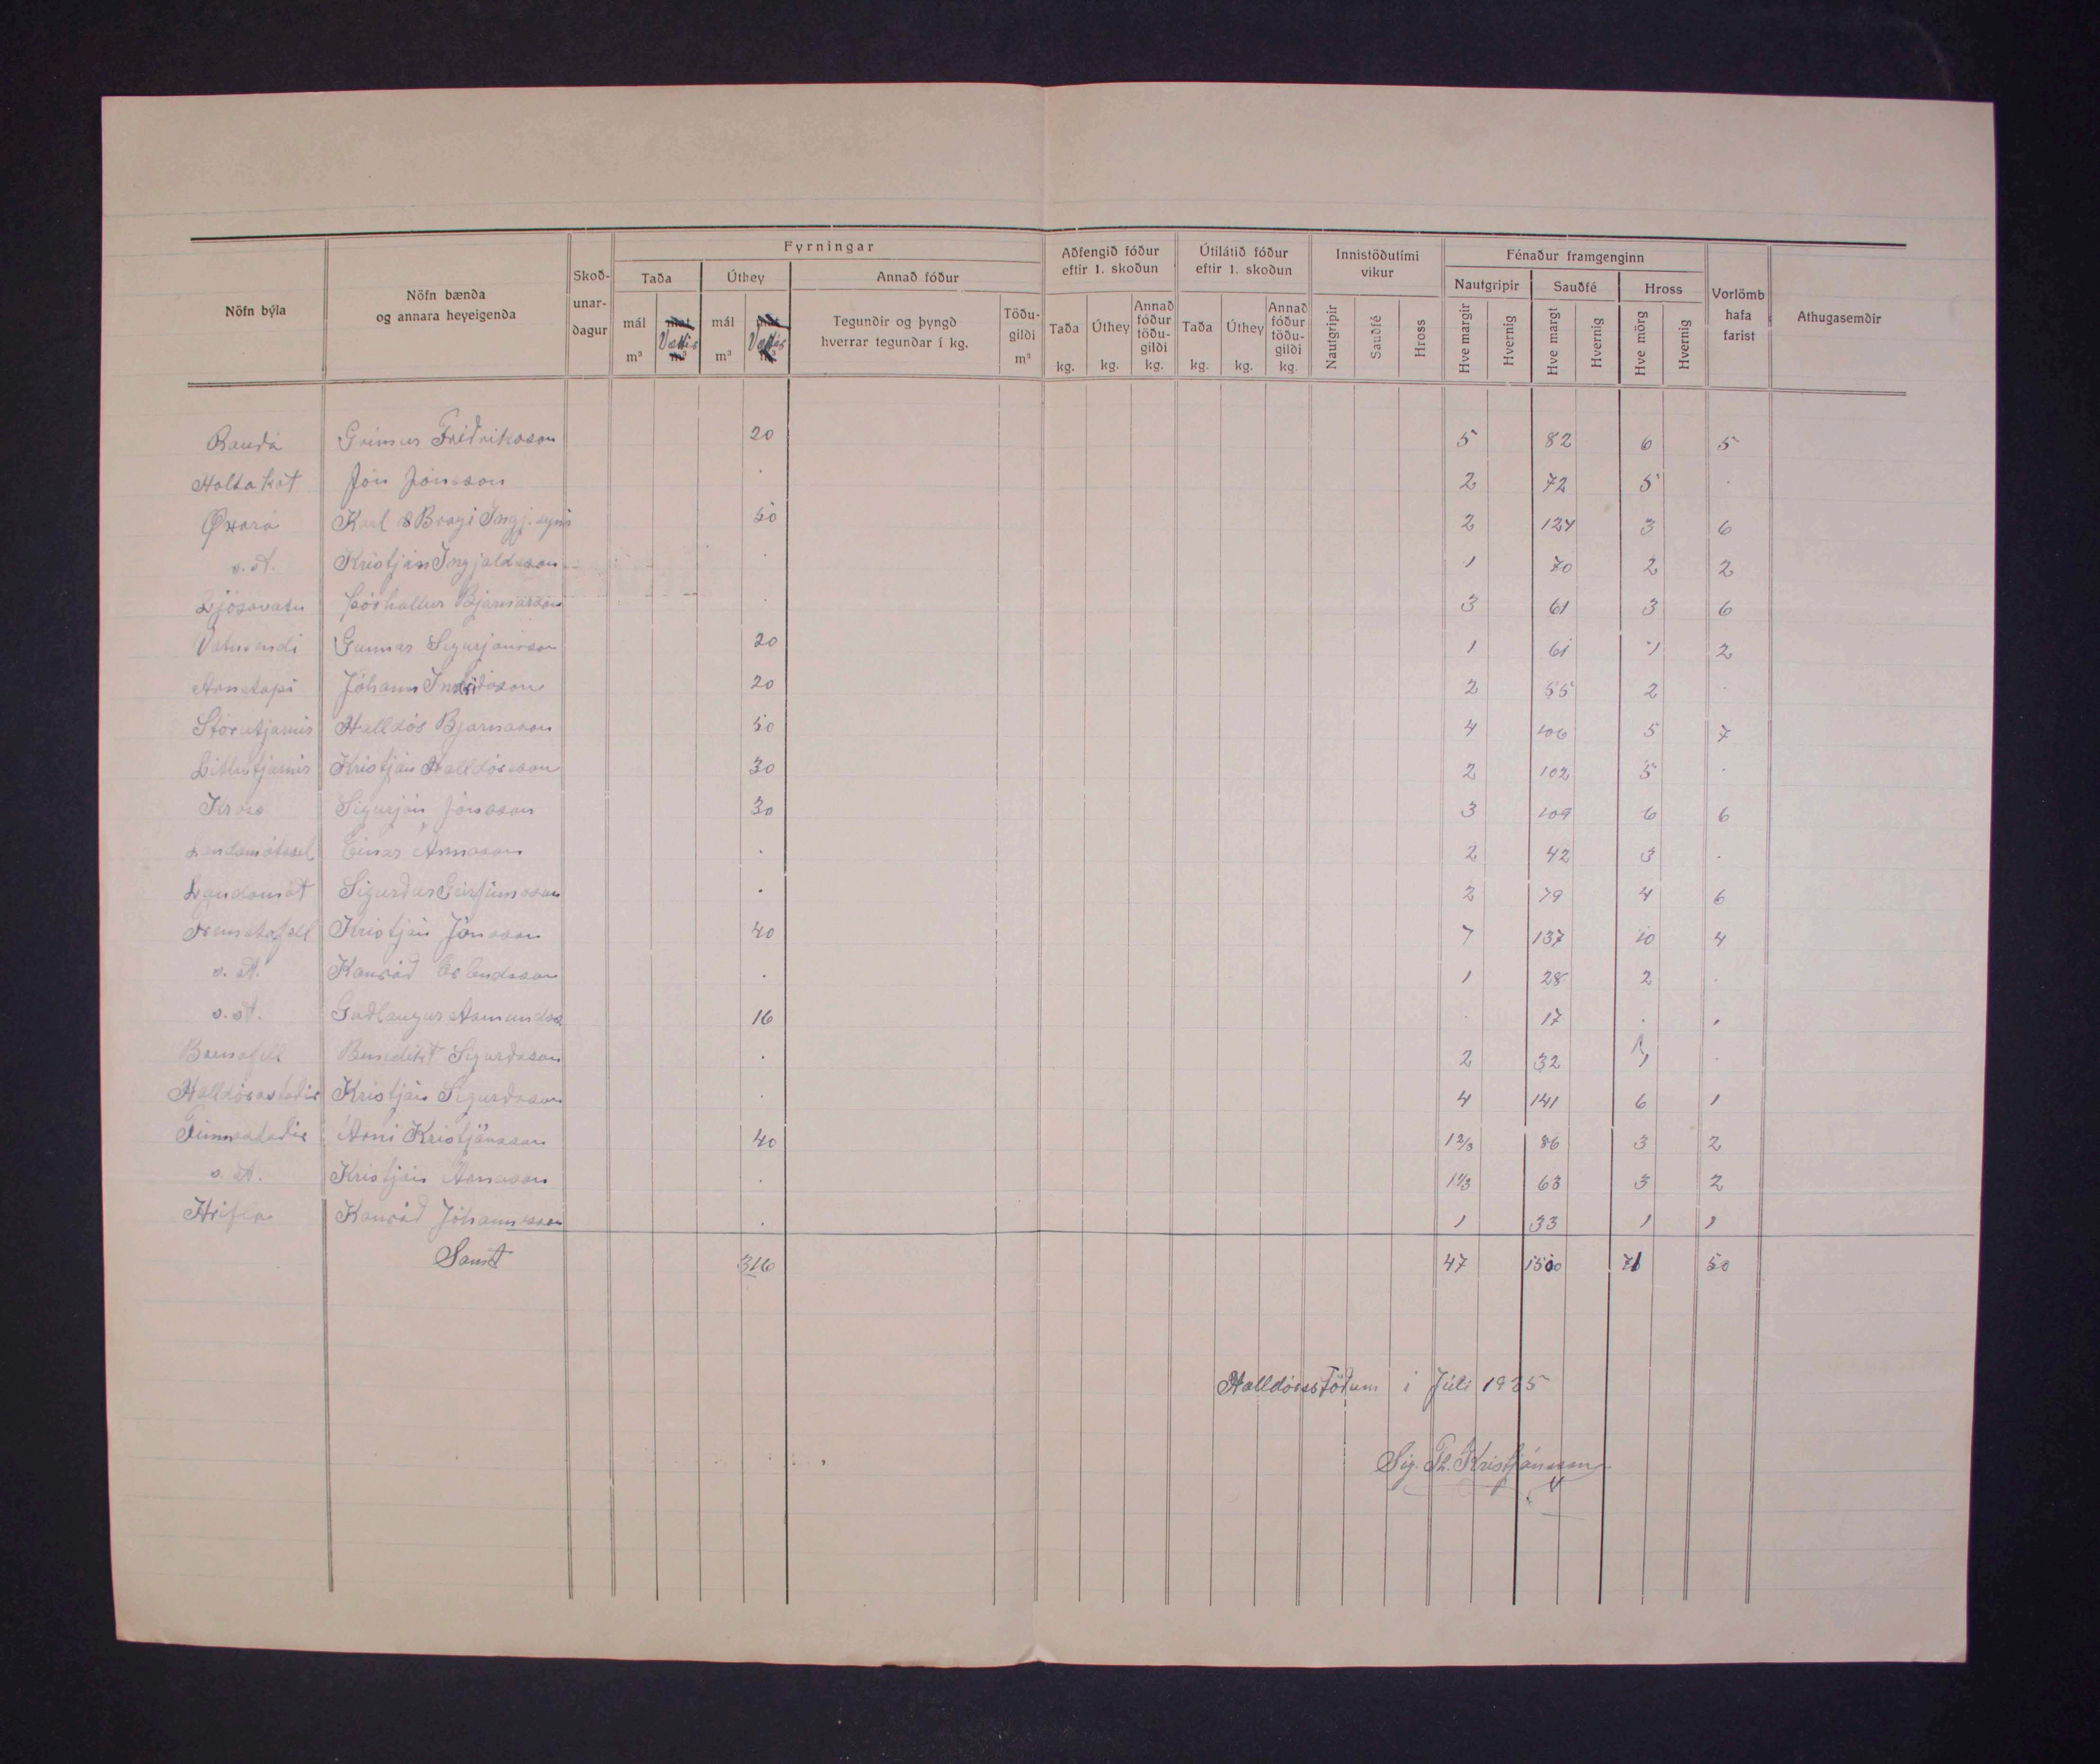 Nöfn býla | Nöfn bænda og annara heyeigenda | Skoð-unar-dagur | Fyrningar | Aðfengið fóður eftir 1. skoðun | Útilátið fóður eftir 1. skoðun | Innistöðutími vikur | Fénaður framgenginn | Vorlömb hafa farist | Athugasemdir
Taða | Úthey | Annað fóður | Nautgripir | Sauðfé | Hross
mál m³ | Vættir | mál m³ | Vættir | Tegundir og þyngd hverrar tegundar í kg. | Töðu-gildi m³ | Taða kg. | Úthey kg. | Annað fóður töðu-gildi kg. | Taða kg. | Úthey kg. | Annað fóður töðu-gildi kg. | Nautgripir | Sauðfé | Hross | Hve margir | Hvernig | Hve margt | Hvernig | Hve mörg | Hvernig
Rauðá | Grímur Friðriksson | 20 | 5 | 82 | 6 | 5
Holtakot | Jón Jónsson | . | 2 | 72 | 5 | .
Øxará | Karl & Bragi Ingj.synir | 50 | 2 | 124 | 3 | 6
s. st. | Kristján Ingjaldsson | . | 1 | 70 | 2 | 2
Ljósavatn | Þórhallur Bjarnarson | . | 3 | 61 | 3 | 6
Vatnsendi | Gunnar Sigurjónsson | 20 | 1 | 61 | 1 | 2
Arnstapi | Jóhann | 20 | 2 | 55 | 2 | .
Stórutjarnir | Halldór Bjarnason | 50 | 4 | 106 | 5 | 7
Litlutjarnir | Kristján Halldórsson | 30 | 2 | 102 | 5 | .
Kross | Sigurjón Jónsson | 30 | 3 | 109 | 6 | 6
Landamótssel | Einar Árnason | . | 2 | 42 | 3 | .
Landamót | Sigurður Geirfinnsson | . | 2 | 79 | 4 | 6
Fremstafell | Kristján Jónsson | 40 | 7 | 137 | 10 | 4
s. st. | Konráð Erlendsson | . | 1 | 28 | 2 | .
s. st. | Guðlaugur Ásmundss | 16 | . | 17 | . | .
Barnafell | Benedikt Sigurðsson | . | 2 | 32 | 1 | .
Halldórsstaðir | Kristján Sigurðsson | . | 4 | 141 | 6 | 1
Finnsstaðir | Árni Kristjánsson | 40 | 1 2/3 | 86 | 3 | 2
s. st. | Kristján Árnason | . | 1 1/3 | 63 | 3 | 2
Hrifla | Konráð Jóhannsson | . | 1 | 33 | 1 | 1
Samt | 316 | 47 | 1500 | 71 | 50
Halldórsstöðum í Júlí 1935
Sig. Þ. Kristjánsson